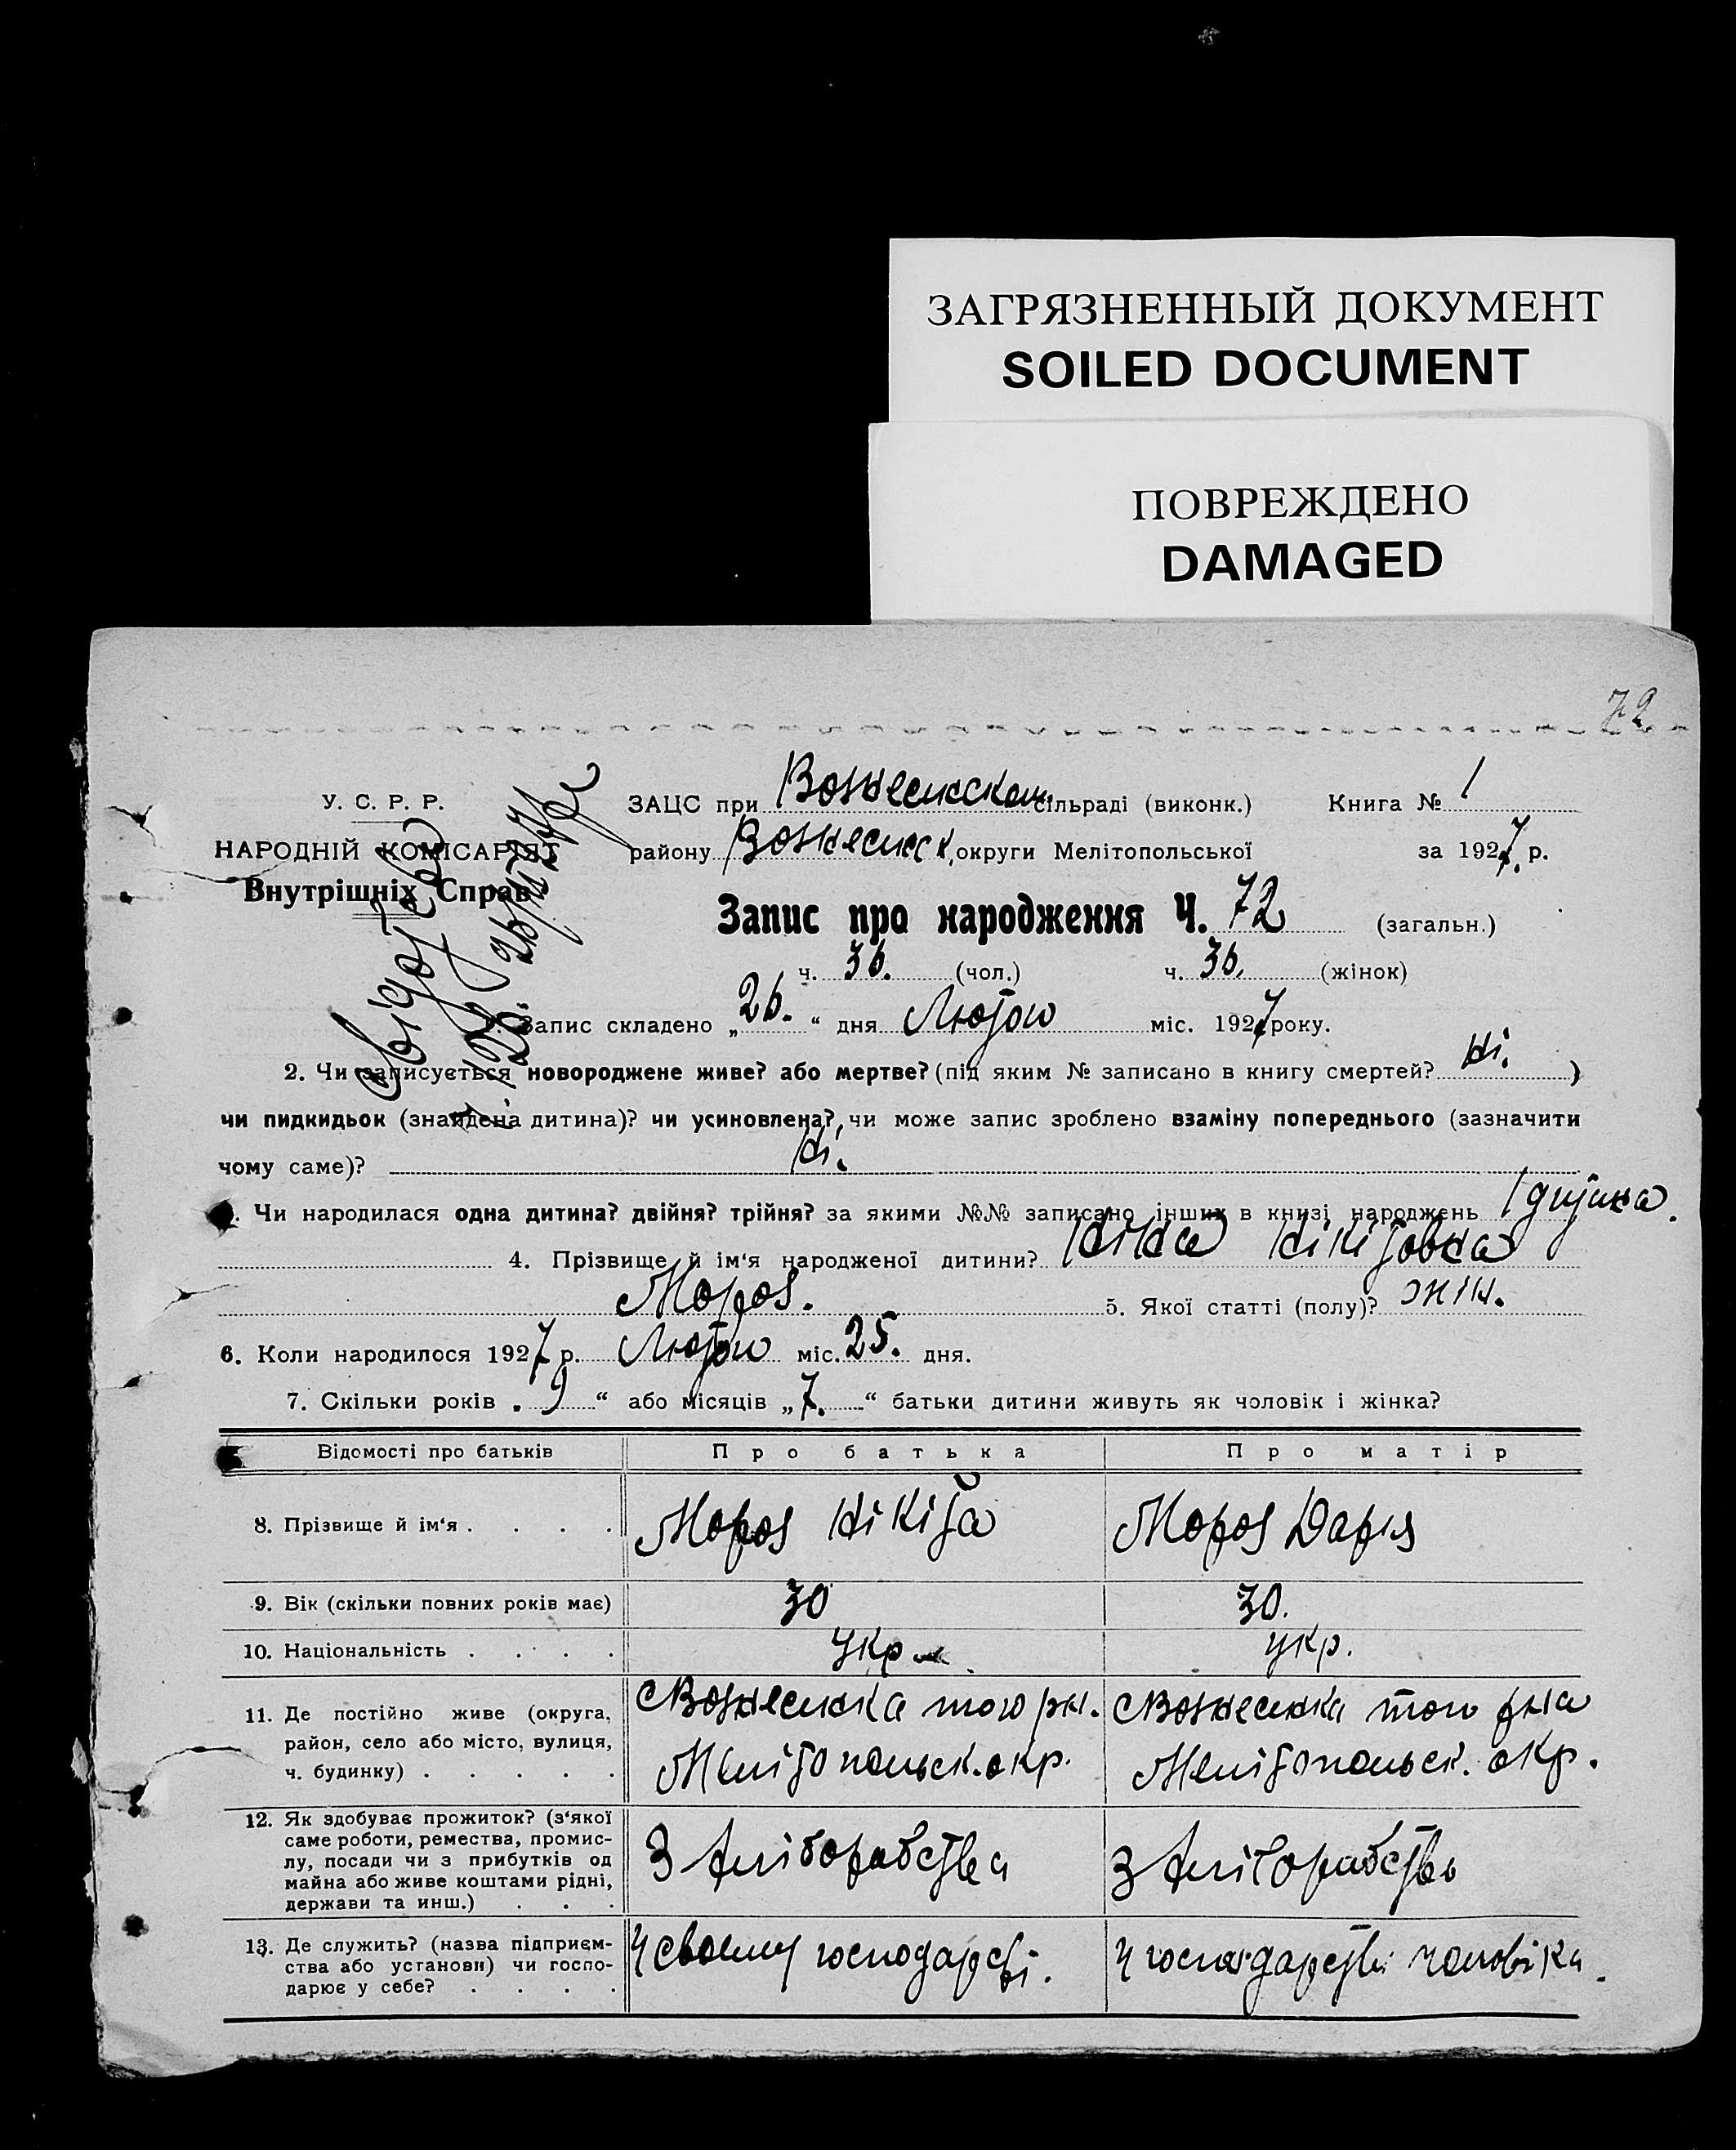 ЗАГРЯЗНЕННЫЙ ДОКУМЕНТ
SOILED DOCUMENT
ПОВРЕЖДЕНО
DAMAGED
72
У. С. Р. Р.
НАРОДНІЙ КОМІСАРІЯТ
Внутрішніх Справ
ЗАЦС при Вознесенском сільраді (виконк.) Книга № 1
району Вознесенск, округи Мелітопольської за 1927 р.
Запис про народження Ч. 72 (загальн.)
ч. 36. (чол.) ч. 36. (жінок)
1. Запис складено „26.“ дня Лютого міс. 1927 року.
2. Чи записується новороджене живе? або мертве? (під яким № записано в книгу смертей? Ні. )
чи пидкидьок (знайдена дитина)? чи усиновлена? чи може запис зроблено взаміну попереднього (зазначити
чому саме)? Ні.
Чи народилася одна дитина? двійня? трійня? за якими №№ записано інших в книзі народжень 1 дитина.
4. Прізвище й ім‘я народженої дитини? Ніна Нікітовна
Мороз. 5. Якої статті (полу)? жін.
6. Коли народилося 1927 р. Лютого міс. 25. дня.
7. Скільки років „9“ або місяців „7.“ батьки дитини живуть як чоловік і жінка?
Відомості про батьків Про батька Про матір
8. Прізвище й ім‘я . . . . Мороз Нікіта Мороз Дарія
9. Вік (скільки повних років має) 30 30.
10. Національність . . . . Укр укр.
11. Де постійно живе (округа, район, село або місто, вулиця, ч. будинку) . . . . .
Вознесенка того рн. Мелітопольск. окр.
Вознесенка того рна Мелітопольск. окр.
12. Як здобуває прожиток? (з‘якої саме роботи, ремества, промислу, посади чи з прибутків од майна або живе коштами рідні, держави та инш.) . . .
З хліборобства
З хліборобства
13. Де служить? (назва підприємства або установи) чи господарює у себе? . . . .
У своему господарстві.
У господарстві чоловіка.